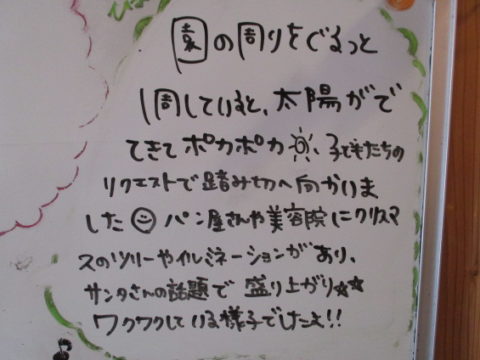 園の周りをぐるっと
1周していると、太陽がで
てきてポカポカ☀、子どもたちの
リクエストで踏み切へ向かいま
した☺ パン屋さんや美容院にクリスマ
スのツリーやイルミネーションがあり、
サンタさんの話題で盛り上がり☆☆
ワクワクしている様子でしたよ!!